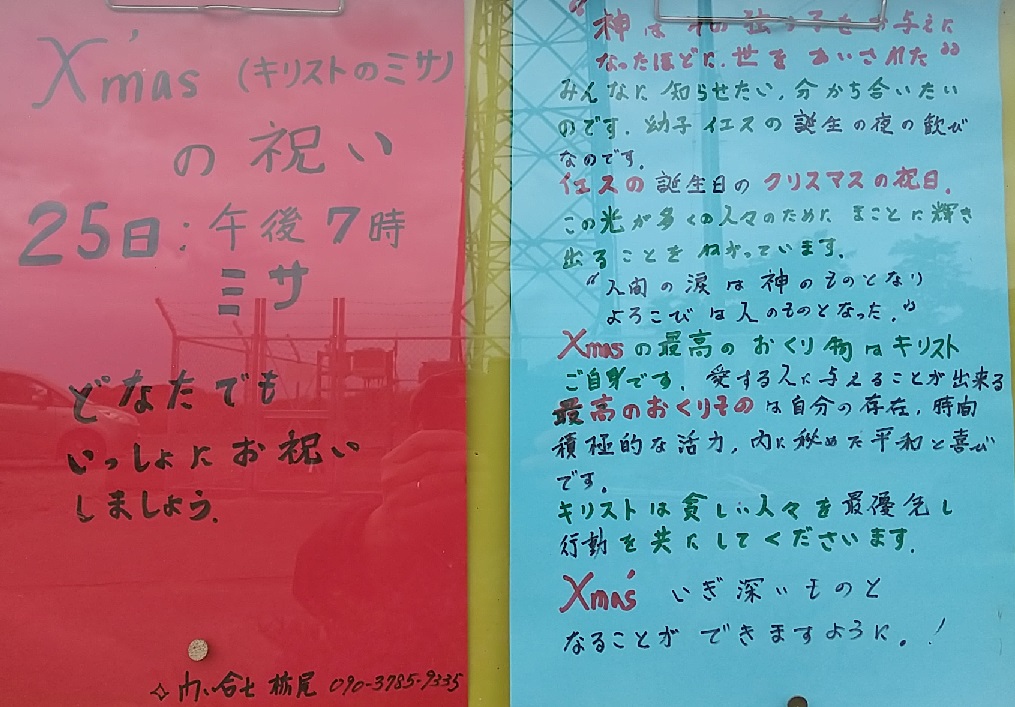 X'mas (キリストのミサ)
の祝い
25日:午後7時
ミサ
どなたでも
いっしょにお祝い
しましょう.
問い合せ 栃尾 090-3785-9335
"神はその独り子をお与えに
なったほどに.世をあいされた"
みんなに知らせたい,分かち合いたい
のです.幼子イエスの誕生の夜の歓び
なのです.
イエスの誕生日のクリスマスの祝日.
この光が多くの人々のために まことに輝き
出ることをねがっています.
"人間の涙は神のものとなり
よろこびは人のものとなった."
Xmasの最高のおくり物はキリスト
ご自身です.愛する人に与えることが出来る
最高のおくりものは自分の存在,時間
積極的な活力,内に秘めた平和と喜び
です.
キリストは貧しい人々を最優先し
行動を共にしてくださいます.
Xmas' いぎ深いものと
なることができますように。!